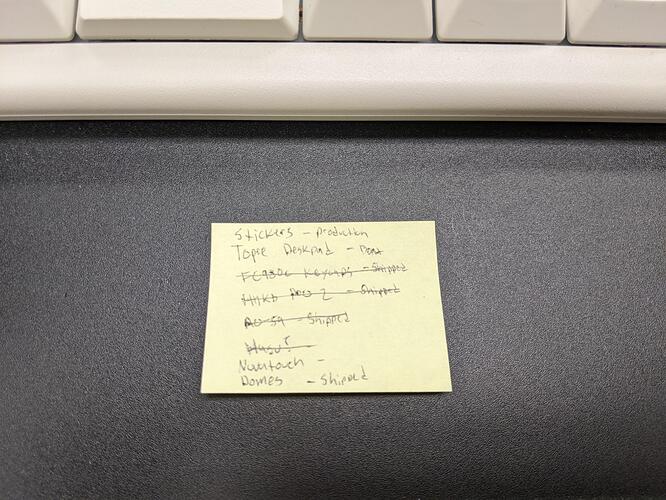 Stickers - Production
Topre Deskpad -
FC980c Keycaps - Shipped
HHKB Pro 2 - Shipped
- Shipped
Hasu?
Novatouch -
Domes - Shipped